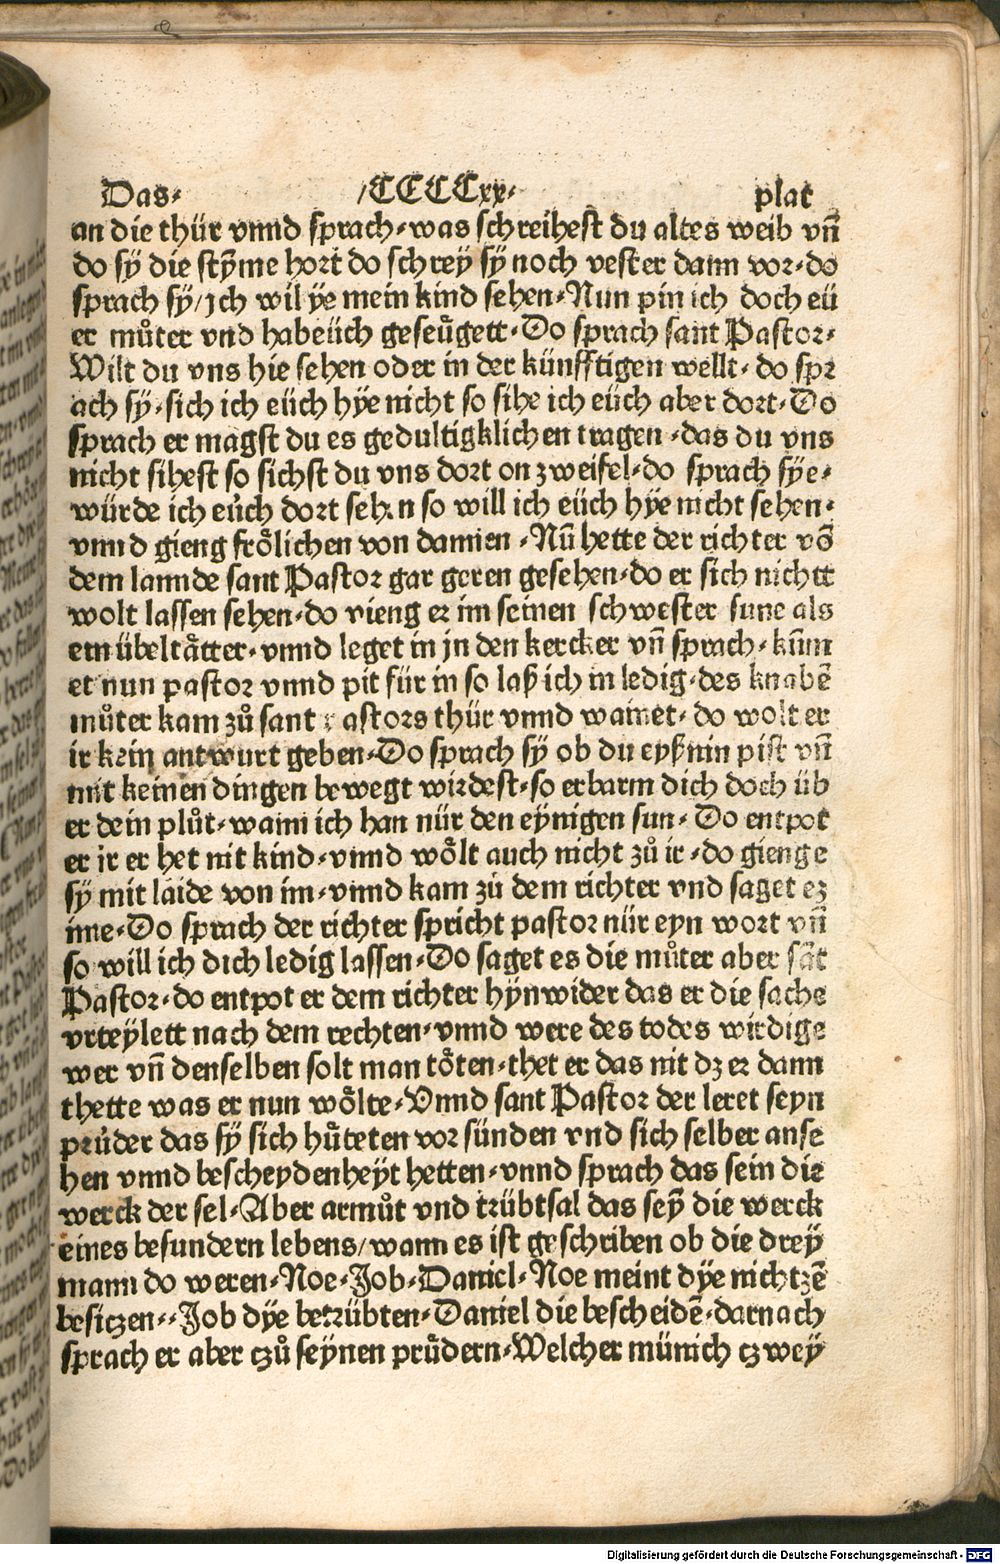 Das· /CCCCxx· plat
an die thür vnnd sprach·was schreihest du altes weib vñ
do sy die stȳme hort do schrey sy noch vester dann vor·do
sprach sy/jch wil ye mein kind sehen·Nun pin ich doch eü
er můter vnd habeüch geseügett·Do sprach sant Pastor·
Wilt du vns hie sehen oder in der künfftigen wellt·do spr
ach sy·sich ich eüch hye nicht so sihe ich eüch aber dort·Do
sprach er magst du es gedultigklichen tragen·das du vns
nicht sihest so sichst du vns dort on zweifel·do sprach sye·
würde ich eüch dort sehen so will ich eüch hye nicht sehen·
vnnd gieng frölichen von dannen·Nū hette der richter vō
dem lannde sant Pastor gar geren gesehen·do er sich nichtt
wolt lassen sehen·do vieng er im seinen schwester sune als
ein übeltätter·vnnd leget in jn den kercker vñ sprach·kūm
et nun pastor vnnd pit für in so laß ich in ledig·des knabē
můter kam zů sant astors thür vnnd wainet·do wolt er
ir kein antwurt geben·Do sprach sy ob du eyßnin pist vñ
mit keinen dingen bewegt wirdest·so erbarm dich doch üb
er dein plůt·wann ich han nür den eynigen sun·Do entpot
er ir er het nit kind·vnnd wölt auch nicht zů ir·do gienge
sy mit laide von im·vnnd kam zů dem richter vnd saget ez
ime·Do sprach der richter spricht pastor nür eyn wort vñ
so will ich dich ledig lassen·Do saget es die můter aber sāt
Pastor·do entpot er dem richter hynwider das er die sache
vrteylett nach dem rechten·vnnd were des todes wirdige
wer vñ denselben solt man töten·thet er das nit dz er dann
thette was er nun wölte·Vnnd sant Pastor der leret seyn
prüder das sy sich hüteten vor sünden vnd sich selber anse
hen vnnd bescheydenheyt hetten·vnnd sprach das sein die
werck der sel·Aber armůt vnd trübtsal das sey die werck
eines besundern lebens/wann es ist geschriben ob die drey
mann do weren·Noe·Job·Daniel·Noe meint dye nichtzē
besiczen··Job dye betrübten·Daniel die bescheidē·darnach
sprach er aber czů seynen prüdern·Welcher münich czwey
Digitalisierung gefördert durch die Deutsche Forschungsgemeinschaft - DFG